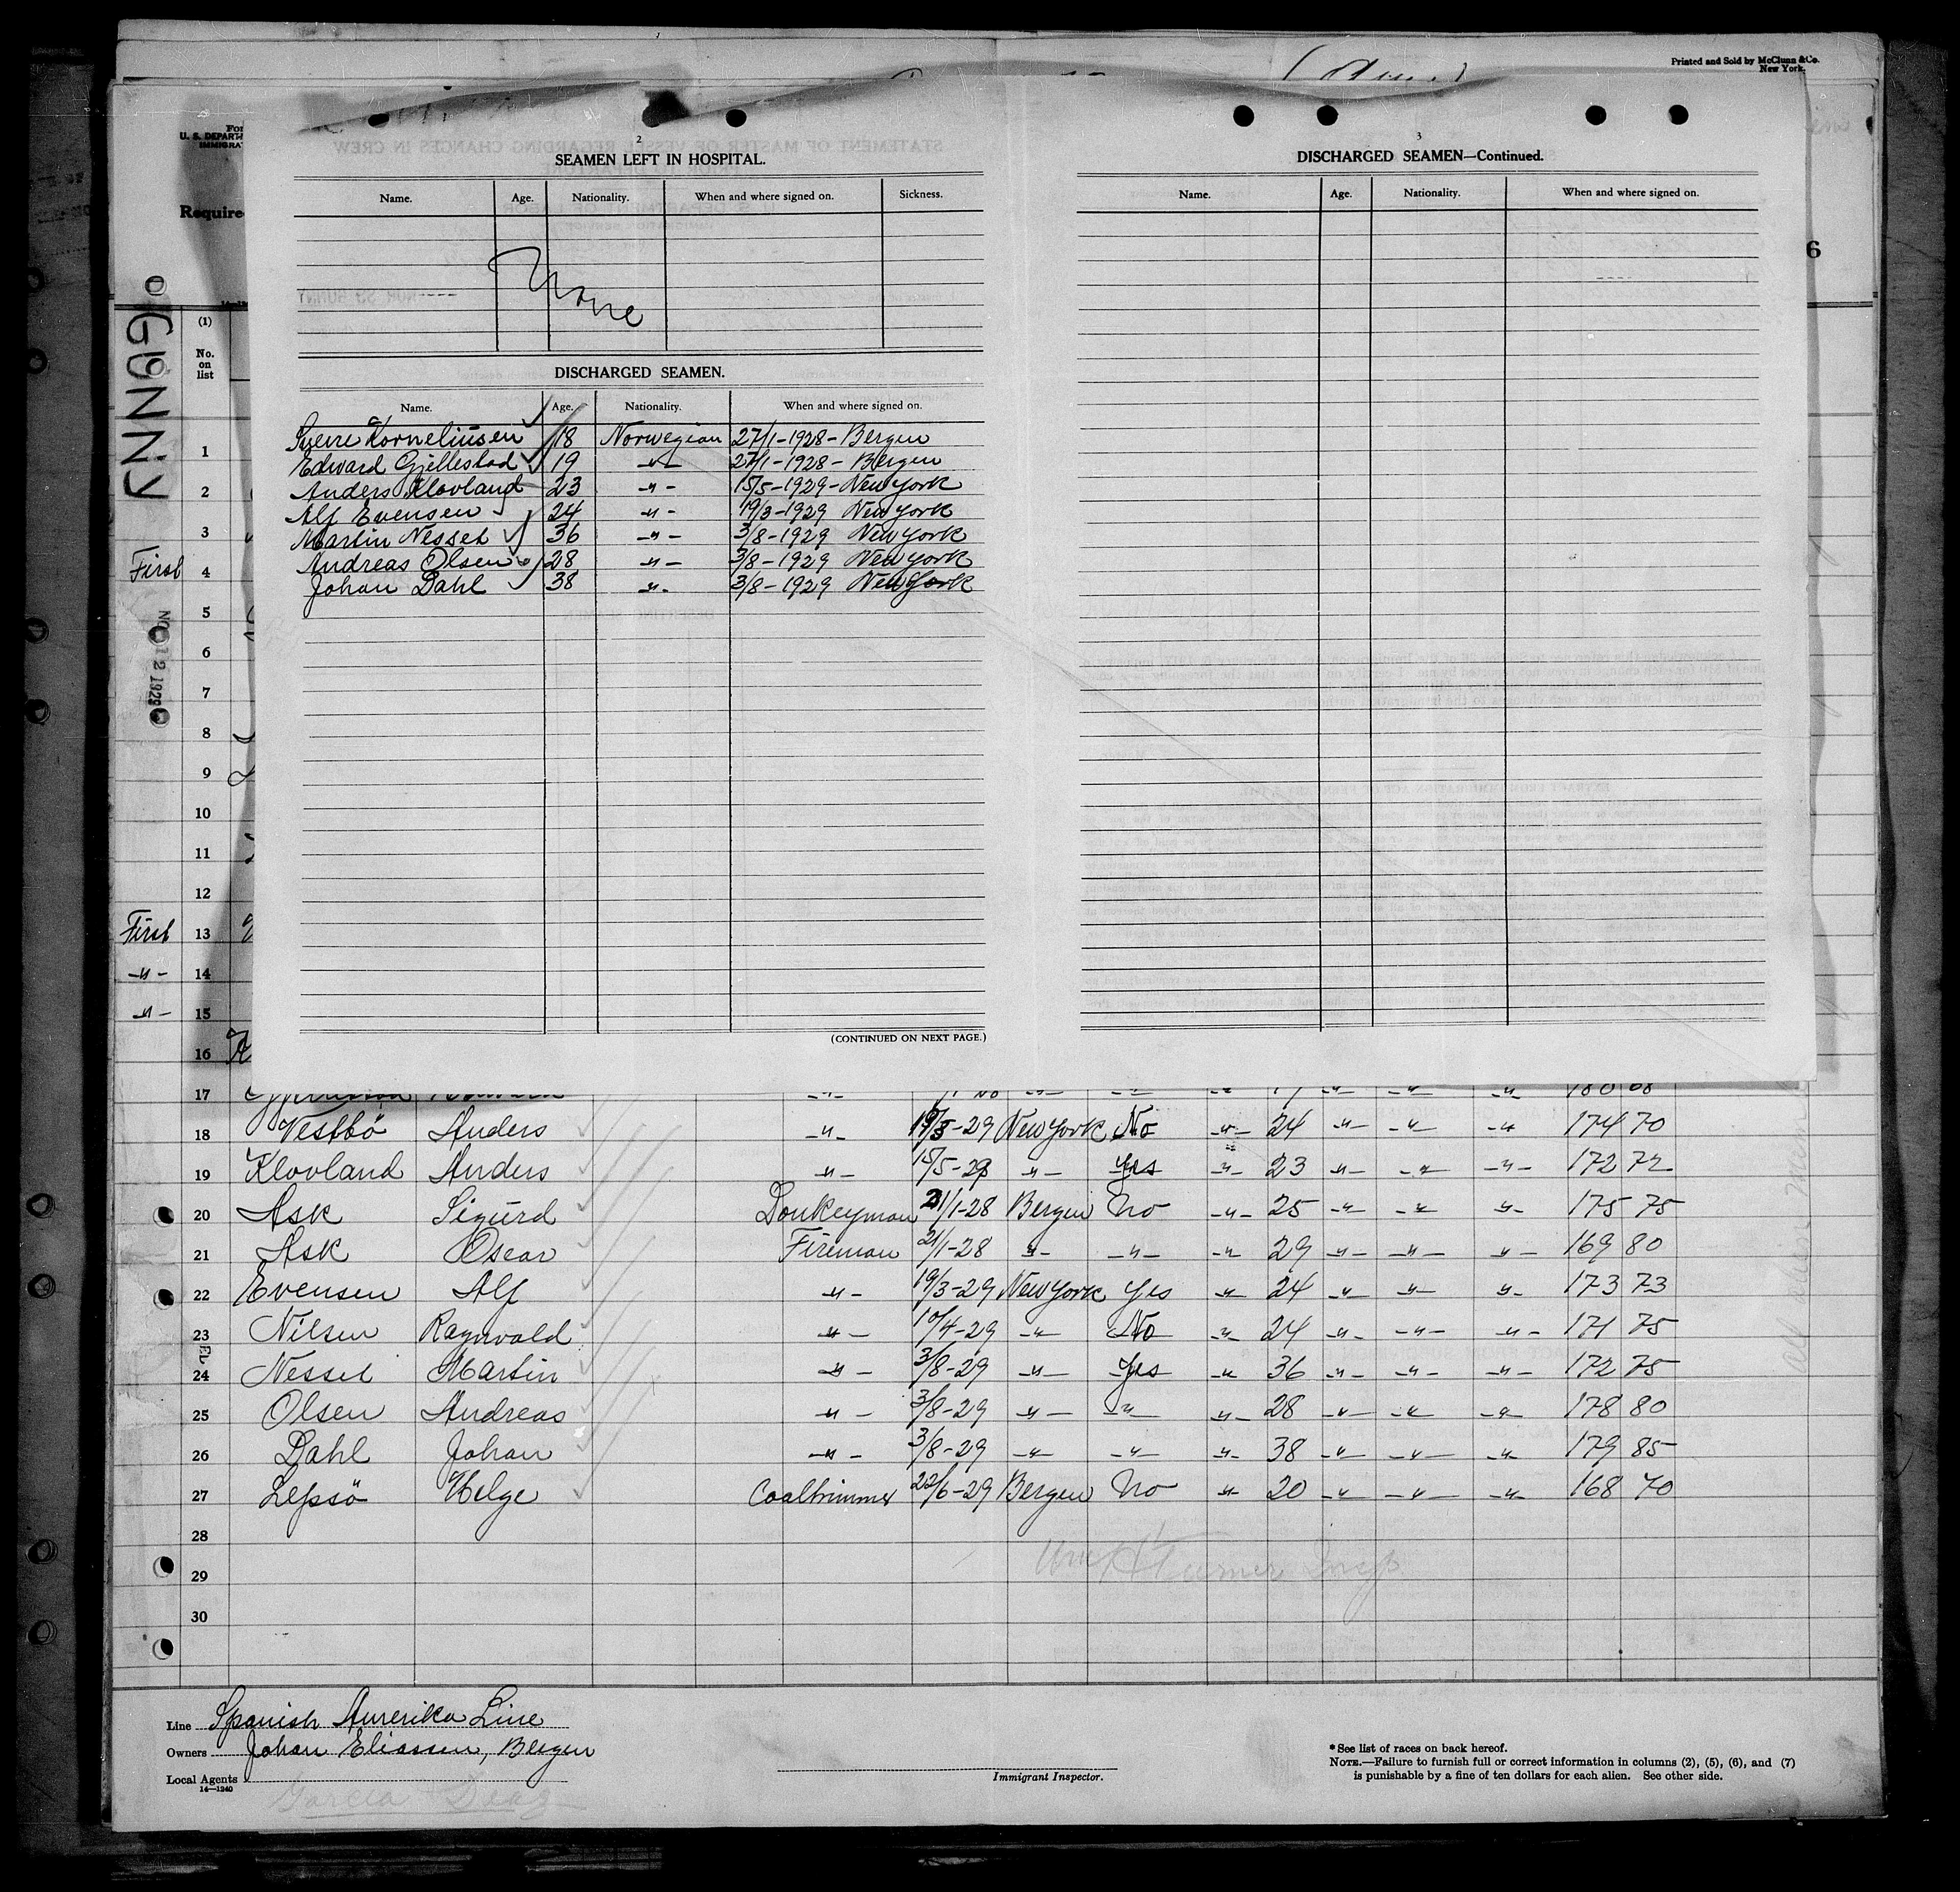 Printed and Sold by McClunn & Co.
New York.
For
U. S. DEPART
IMMIGRA
Require
6
2
SEAMEN LEFT IN HOSPITAL.
Name. Age. Nationality. When and where signed on. Sickness.
None
DISCHARGED SEAMEN.
Name. Age. Nationality. When and where signed on.
Sverre Korneliusen 18 Norwegian 27/1-1928- Bergen
Edward Gjellestad 19 -"- 27/1-1928- Bergen
Anders Klovland 23 -"- 15/5-1929- New York
Alf Evensen 24 -"- 19/3-1929 New York
Martin Nesset 36 -"- 3/8-1929 New York
Andreas Olsen 28 -"- 3/8-1929 New York
Johan Dahl 38 -"- 3/8-1929 New York
(CONTINUED ON NEXT PAGE.)
3
DISCHARGED SEAMEN—Continued.
Name. Age. Nationality. When and where signed on.
GUNNY
(1)
No.
on
list
1
2
3
First 4
5
NOV 12 1929
6
7
8
9
10
11
12
First 13
-"- 14
-"- 15
16
17 -"- -"- -"- -"- -"- -"- -"- 180 68
18 Vestbö Anders -"- 19/3-29 New York No -"- 24 -"- -"- -"- 174 70
19 Klovland Anders -"- 15/5-29 -"- Yes -"- 23 -"- -"- -"- 172 72
20 Ask Sigurd Donkeyman 21/1-28 Bergen No -"- 25 -"- -"- -"- 175 75
21 Ask Oscar Fireman 21/1-28 -"- -"- -"- 29 -"- -"- -"- 169 80
22 Evensen Alf -"- 19/3-29 New York Yes -"- 24 -"- -"- -"- 173 73
23 Nilsen Ragnvald -"- 10/4-29 -"- No -"- 24 -"- -"- -"- 171 75
24 Nesset Martin -"- 3/8-29 -"- Yes -"- 36 -"- -"- -"- 172 75
25 Olsen Andreas -"- 3/8-29 -"- -"- -"- 28 -"- -"- -"- 178 80
26 Dahl Johan -"- 3/8-29 -"- -"- -"- 38 -"- -"- -"- 179 85
27 Lepsö Helge Coaltrimmer 22/6-29 Bergen No -"- 20 -"- -"- -"- 168 70
28
29 Turner Insp.
30
Line Spanish Amerika Line
Owners Johan Eliassen, Bergen
Local Agents
14—1240
Garcia Diaz
Immigrant Inspector.
* See list of races on back hereof.
NOTE.—Failure to furnish full or correct information in columns (2), (5), (6), and (7)
is punishable by a fine of ten dollars for each alien. See other side.